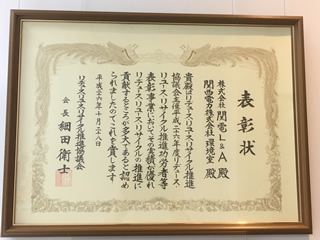 表彰状
株式会社 関電L&A 殿
関西電力株式会社 環境室 殿
貴殿はリデュース・リユース・リサイクル推進
協議会主催平成二十六年度リデュース・
リユース・リサイクル推進功労者等
表彰事業においてその実績が優れ
リデュース・リユース・リサイクルの推進に
貢献するところが多大であると認め
られましたのでこれを賞します
平成二十六年十月二十八日
リデュース・リユース・リサイクル推進協議会
会長 細田衛士